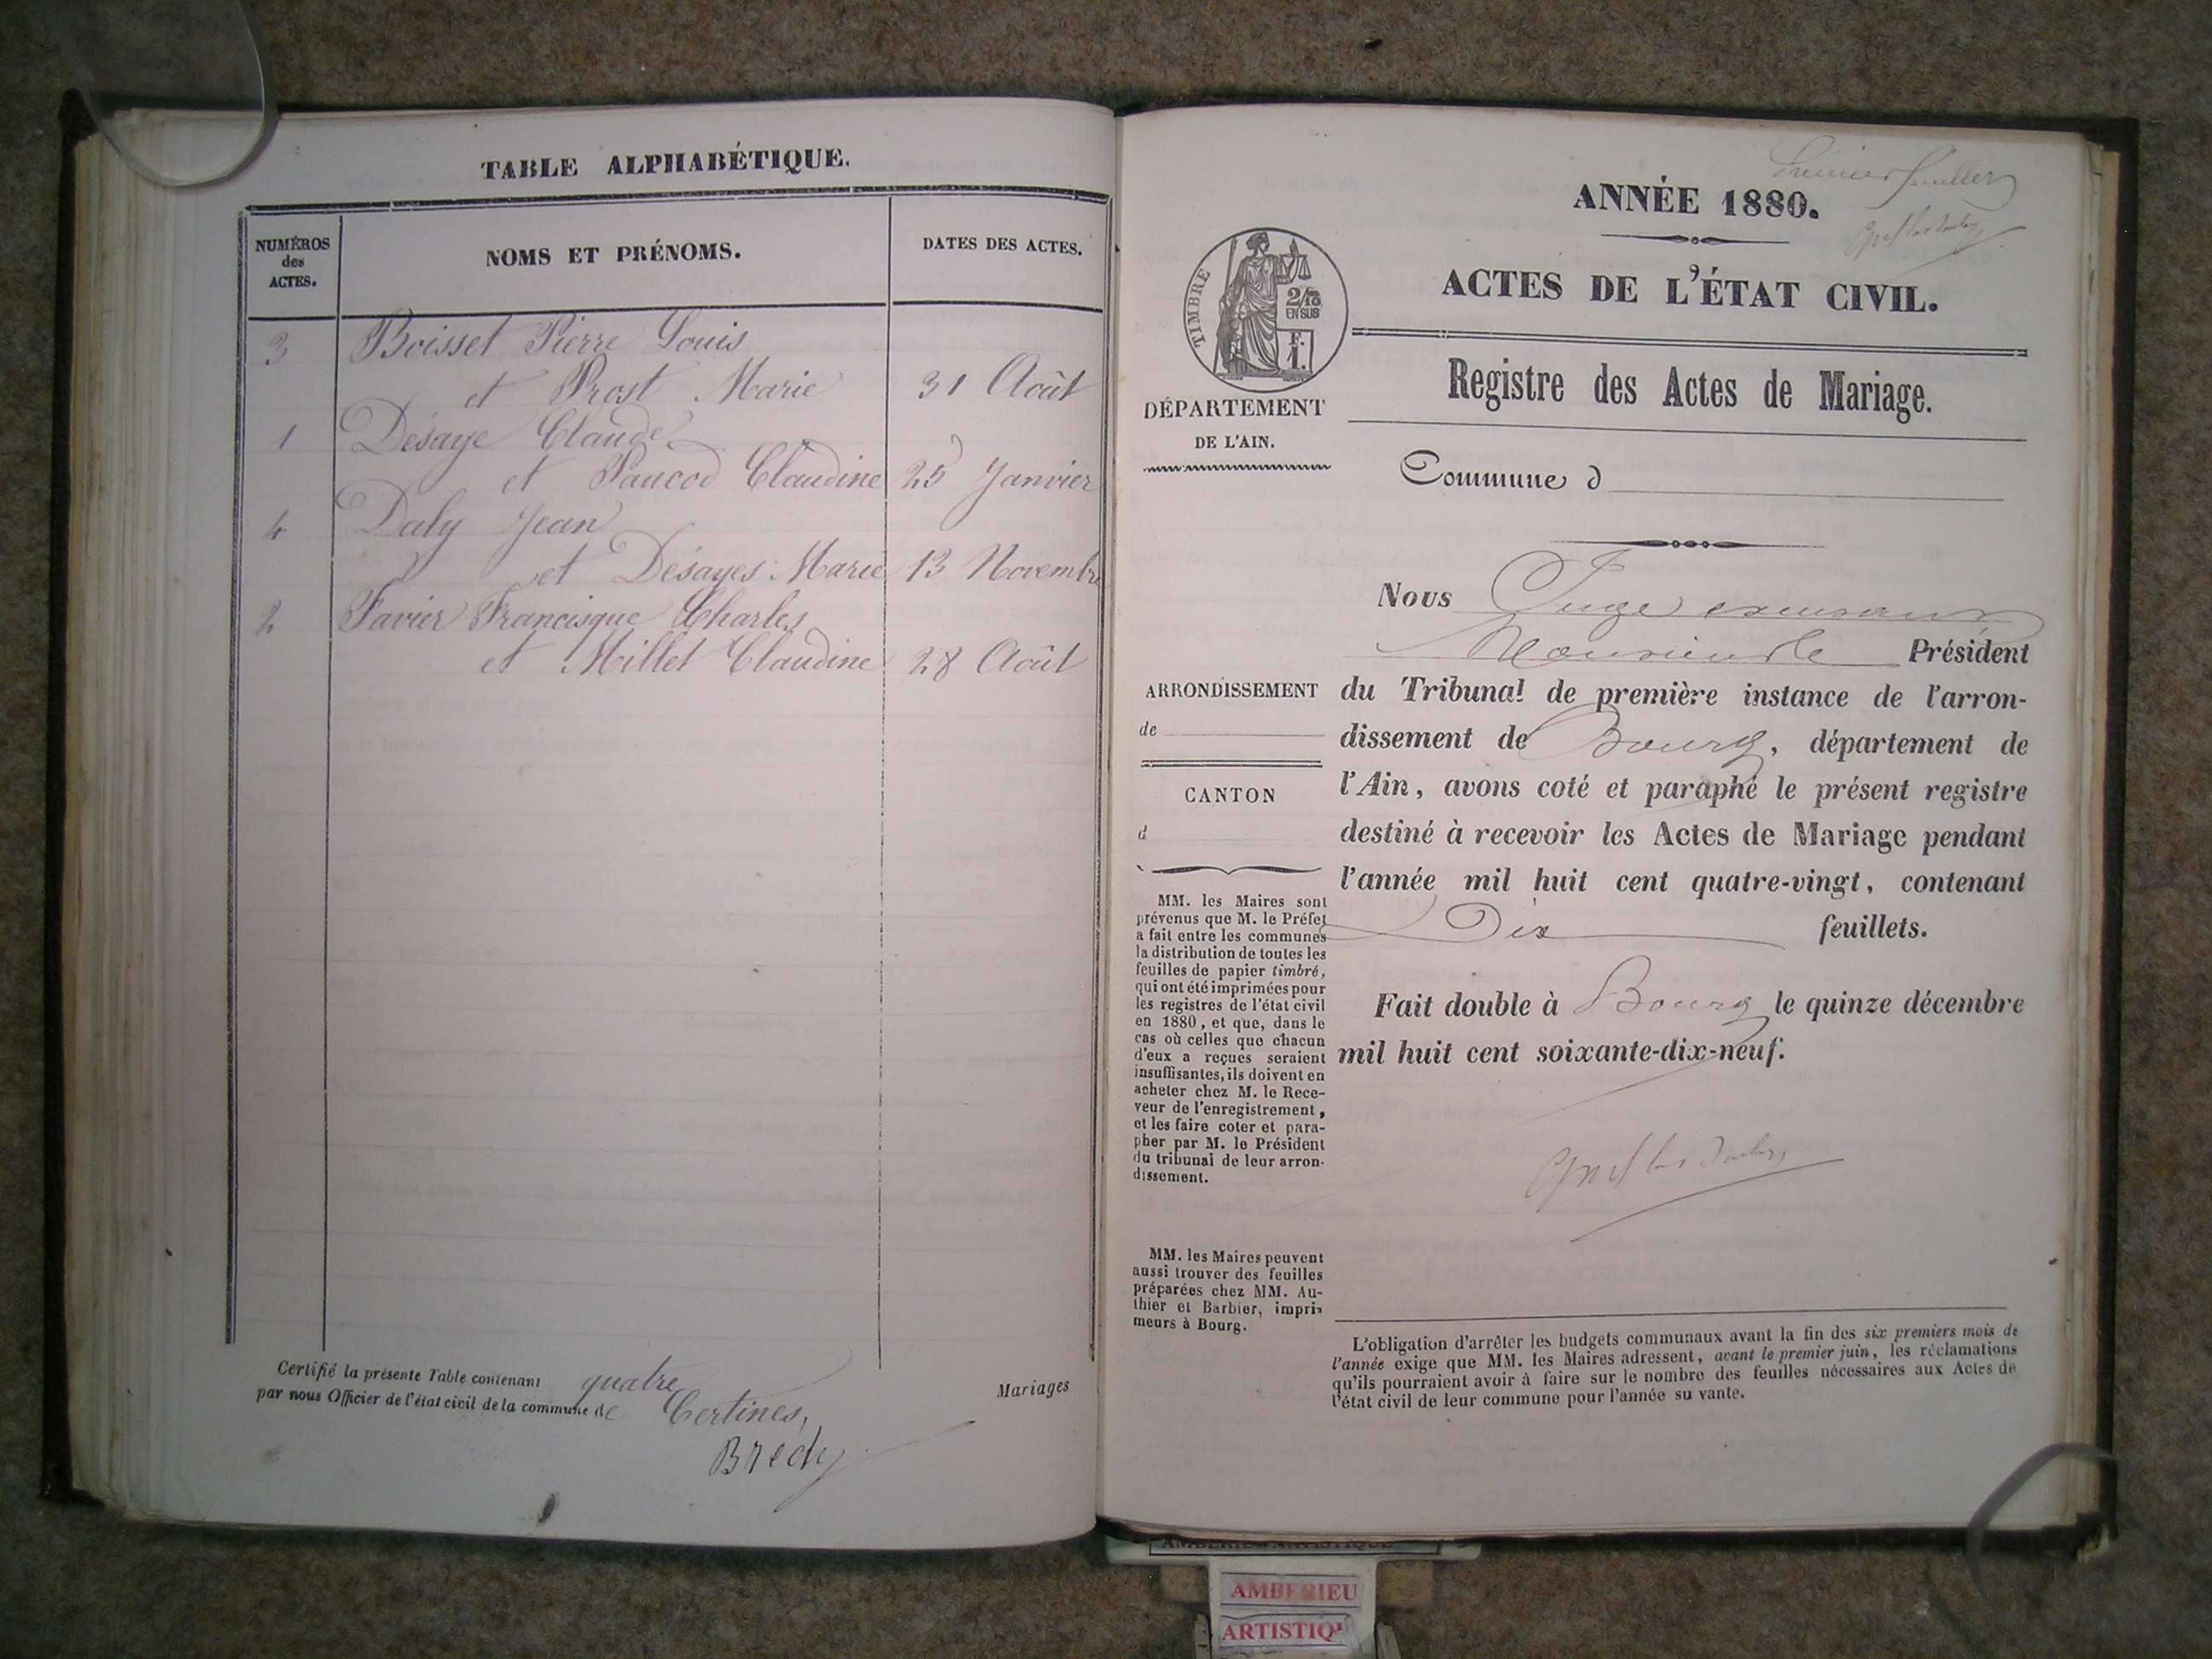 TABLE ALPHABÉTIQUE.
NUMÉROS
des
ACTES.
NOMS ET PRÉNOMS.
DATES DES ACTES.
3 Boisset Pierre Louis
et Prost Marie 31 Août
1 Désaye Claude
et Paucod Claudine 25 Janvier
4 Daly Jean
et Désayes Marie 13 Novembre
2 Favier Francisque Charles
et Millet Claudine 28 Août
Certifié la présente Table contenant quatre Mariages
par nous Officier de l'état civil de la commune de Certines,
Bredy
Premier feuillet
ANNÉE 1880.
ACTES DE L'ÉTAT CIVIL.
TIMBRE
2/10
EN SUS
F.
1.
DÉPARTEMENT
DE L'AIN.
Registre des Actes de Mariage.
Commune d
Nous Juge
Monsieur le Président
du Tribunal de première instance de l'arron-
dissement de Bourg, département de
l'Ain, avons coté et paraphé le présent registre
destiné à recevoir les Actes de Mariage pendant
l'année mil huit cent quatre-vingt, contenant
Dix feuillets.
Fait double à Bourg le quinze décembre
mil huit cent soixante-dix-neuf.
ARRONDISSEMENT
de
CANTON
d
MM. les Maires sont
prévenus que M. le Préfet
a fait entre les communes
la distribution de toutes les
feuilles de papier timbré,
qui ont été imprimées pour
les registres de l'état civil
en 1880, et que, dans le
cas où celles que chacun
d'eux a reçues seraient
insuffisantes, ils doivent en
acheter chez M. le Rece-
veur de l'enregistrement,
et les faire coter et para-
pher par M. le Président
du tribunal de leur arron-
dissement.
MM. les Maires peuvent
aussi trouver des feuilles
préparées chez MM. Au-
thier et Barbier, impri-
meurs à Bourg.
L'obligation d'arrêter les budgets communaux avant la fin des six premiers mois de
l'année exige que MM. les Maires adressent, avant le premier juin, les réclamations
qu'ils pourraient avoir à faire sur le nombre des feuilles nécessaires aux Actes de
l'état civil de leur commune pour l'année su vante.
AMBERIEU ARTISTIQUE
AMBERIEU
ARTISTIQ